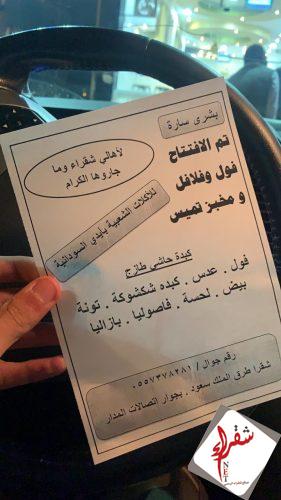 بشرى سارة
تم الافتتاح
فول وفلافل
و مخبز تميس
لأهالي شقراء وما
جاروها الكرام
للأكلات الشعبية بأيدي السودانية
كبدة حاشي طازج
فول . عدس . كبده شكشوكة . تونة
بيض . لحسة . فاصوليا . بازاليا
رقم جوال / ٠٥٥٧٣٧٨٢٨١
شقرا طرق الملك سعود . بجوار اتصالات المدار
شقراء
NET